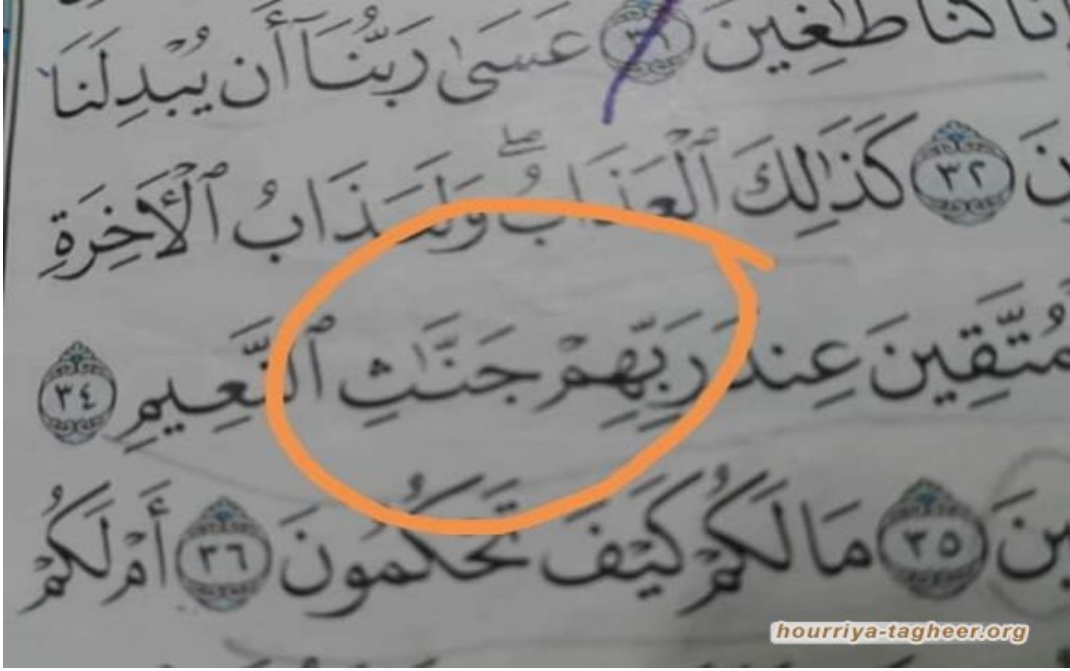 كُنَّا طَٰغِينَ ٣١ عَسَىٰ رَبُّنَآ أَن يُبْدِلَنَا
ـنَ ٣٢ كَذَٰلِكَ ٱلْعَذَابُ ۖ وَلَعَذَابُ ٱلْأَخِرَةِ
ـمُتَّقِينَ عِندَ رَبِّهِمْ جَنَّٰثِ ٱلنَّعِيمِ ٣٤
ـينَ ٣٥ مَا لَكُمْ كَيْفَ تَحْكُمُونَ ٣٦ أَمْ لَكُمْ
hourriya-tagheer.org